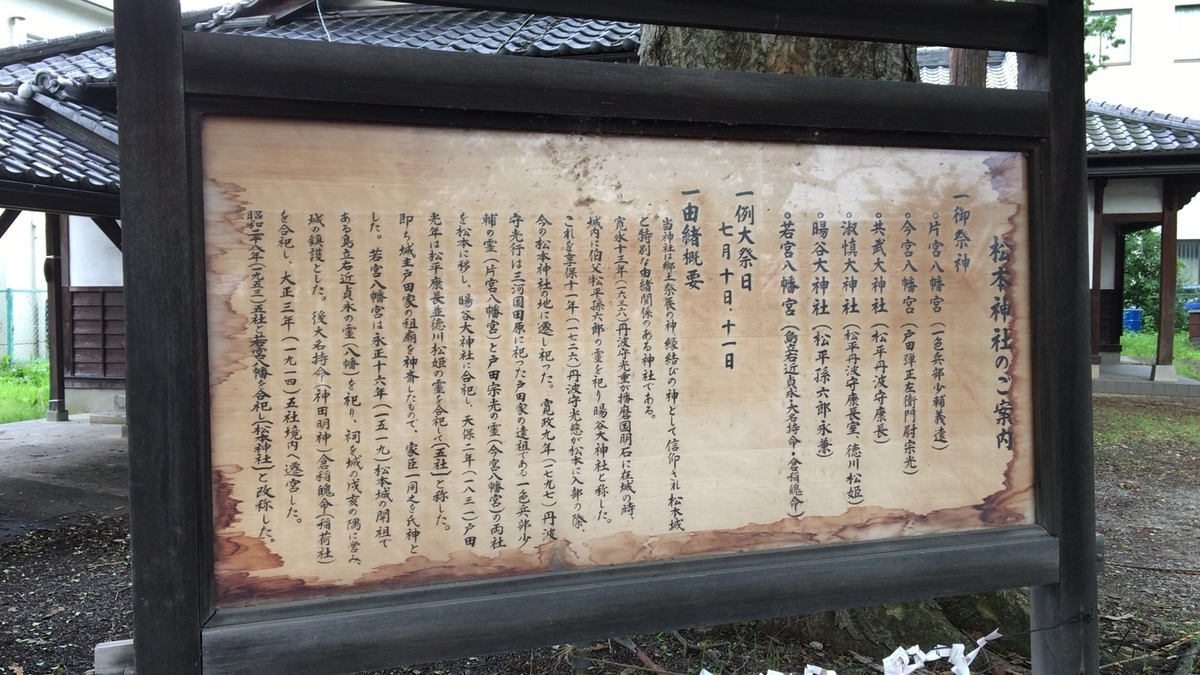 松本神社のご案内
一御祭神
○片宮八幡宮(一色兵部少輔義遠)
○今宮八幡宮(戸田弾正左衛門尉宗光)
○共武大神社(松平丹波守康長)
○淑慎大神社(松平丹波守康長室、徳川松姫)
○暘谷大神社(松平孫六郎永兼)
○若宮八幡宮(島立右近貞永・大名持命・倉稲魂命)
一例大祭日
七月十日、十一日
一由緒概要
当神社は郷土発展の神、縁結びの神として信仰され松本城
と特別な由緒関係のある神社である。
寛永十三年(一六三六)丹波守光重が播磨国明石に在城の時、
城内に伯父松平孫六郎の霊を祀り暘谷大神社と称した。
これを享保十一年(一七二六)丹波守光慈が松本に入部の際、
今の松本神社の地に遷し祀った。寛政九年(一七九七)丹波
守光行は三河国田原に祀った戸田家の遠祖である一色兵部少
輔の霊(片宮八幡宮)と戸田宗光の霊(今宮八幡宮)の両社
を松本に移し、暘谷大神社に合祀し、天保二年(一八三一)戸田
光年は松平康長並徳川松姫の霊を合祀して(五社)と称した。
即ち城主戸田家の祖廟を神斎したもので、家臣一同之を氏神と
した。若宮八幡宮は永正十六年(一五一九)松本城の開祖で
ある島立右近貞永の霊(八幡)を祀り、祠を城の戌亥の隅に営み、
城の鎮護とした。後大名持命(神田明神)倉稲魂命(稲荷社)
を合祀し、大正三年(一九一四)五社境内へ遷宮した。
昭和二十八年(一九五三)五社と若宮八幡を合祀し(松本神社)と改称した。